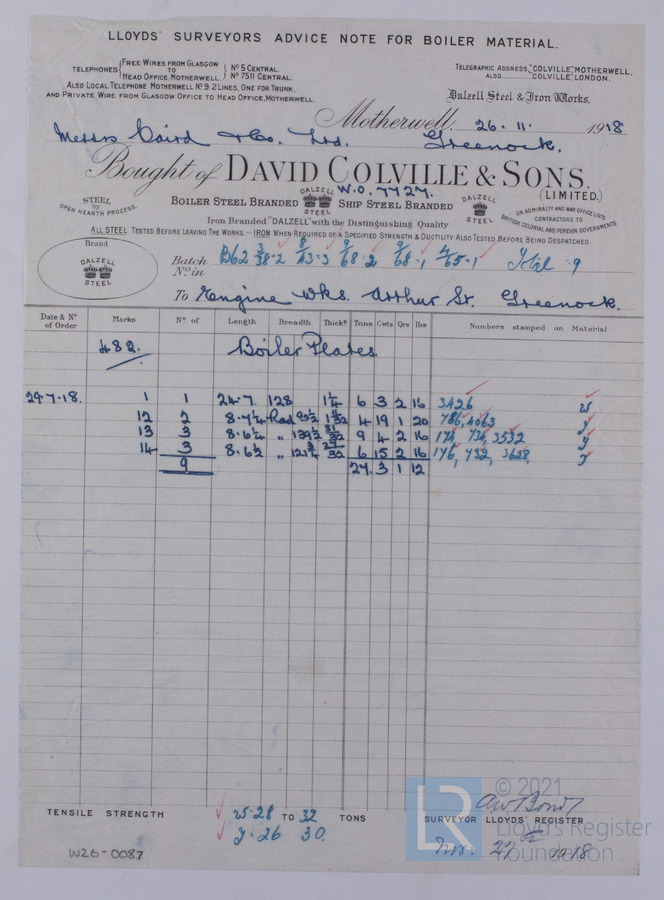 LLOYDS' SURVEYORS ADVICE NOTE FOR BOILER MATERIAL.
TELEPHONES { FREE WIRES FROM GLASGOW TO HEAD OFFICE, MOTHERWELL. } Nº 5 CENTRAL. Nº 7511 CENTRAL.
ALSO LOCAL TELEPHONE MOTHERWELL Nº 9. 2 LINES, ONE FOR TRUNK,
AND PRIVATE WIRE FROM GLASGOW OFFICE TO HEAD OFFICE, MOTHERWELL.
TELEGRAPHIC ADDRESS, "COLVILLE", MOTHERWELL,
ALSO "COLVILLE", LONDON.
Dalzell Steel & Iron Works,
Motherwell, 26. 11. 1918
Messrs Caird & Co. Ltd. Greenock.
Bought of DAVID COLVILLE & SONS.
(LIMITED.)
W.O. 7727.
STEEL by OPEN HEARTH PROCESS.
BOILER STEEL BRANDED DALZELL STEEL SHIP STEEL BRANDED DALZELL STEEL
ON ADMIRALTY AND WAR OFFICE LISTS
CONTRACTORS TO
BRITISH COLONIAL AND FOREIGN GOVERNMENTS.
Iron Branded "DALZELL" with the Distinguishing Quality
ALL STEEL TESTED BEFORE LEAVING THE WORKS. — IRON WHEN REQUIRED OF A SPECIFIED STRENGTH & DUCTILITY ALSO TESTED BEFORE BEING DESPATCHED.
Brand
DALZELL STEEL
Batch Nº in B62 3/38-2 8/43-3 9/68-2 9/68-1 4/65-1 Total 9
To Engine Wks. Arthur St. Greenock.
Date & Nº of Order Marks Nº of Length Breadth Thickˢ Tons Cwts Qrs lbs Numbers stamped on Material
482. Boiler Plates
29.7.18. 1 1 24.7 128 1¼ 6 3 2 16 3426 W
12 2 8.7¼ Rad 4 19 1 20 786, 4063 Y
13 3 8.6¼ " 9 4 2 16 174, 734, 3532 Y
14 3 8.6½ " 6 15 2 16 176, 732, 3628, Y
9 27 3 1 12
TENSILE STRENGTH W.28 TO 32 TONS
Y.26 30.
AW Bond
SURVEYOR LLOYDS' REGISTER
Nov. 27th 1918
W26-0087
LR
© 2021
Lloyd's Register
Foundation